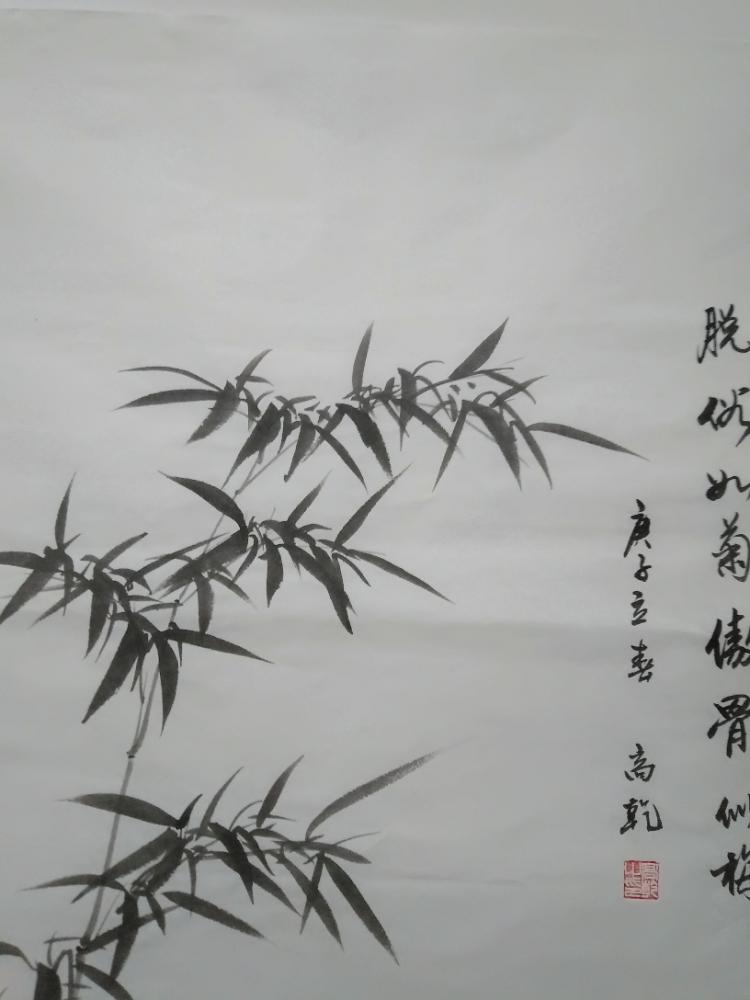 脱俗如菊傲骨似梅
庚子立春 尚乾